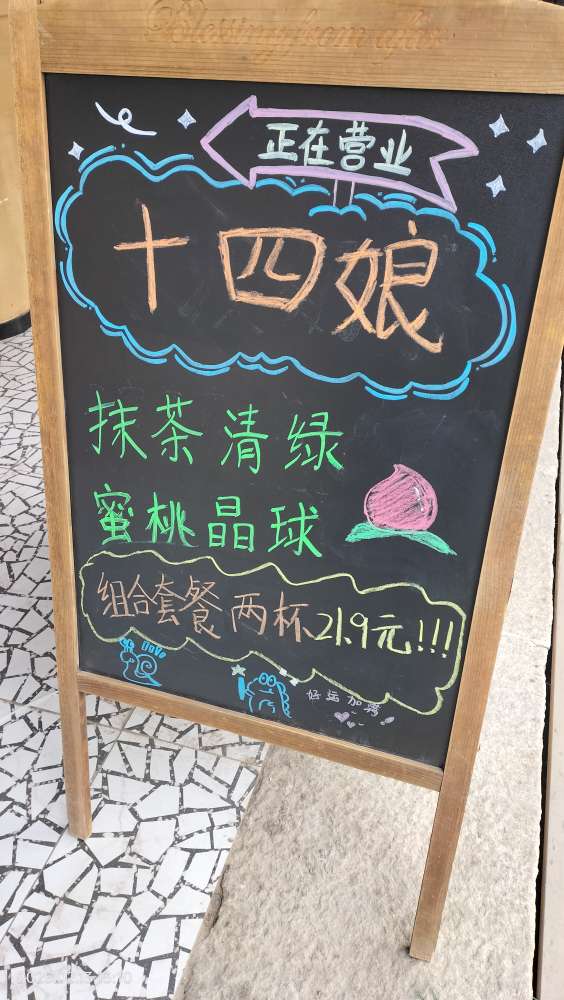 Blessing from afar
正在营业
十四娘
抹茶清绿
蜜桃晶球
组合套餐 两杯21.9元!!!
好运加满